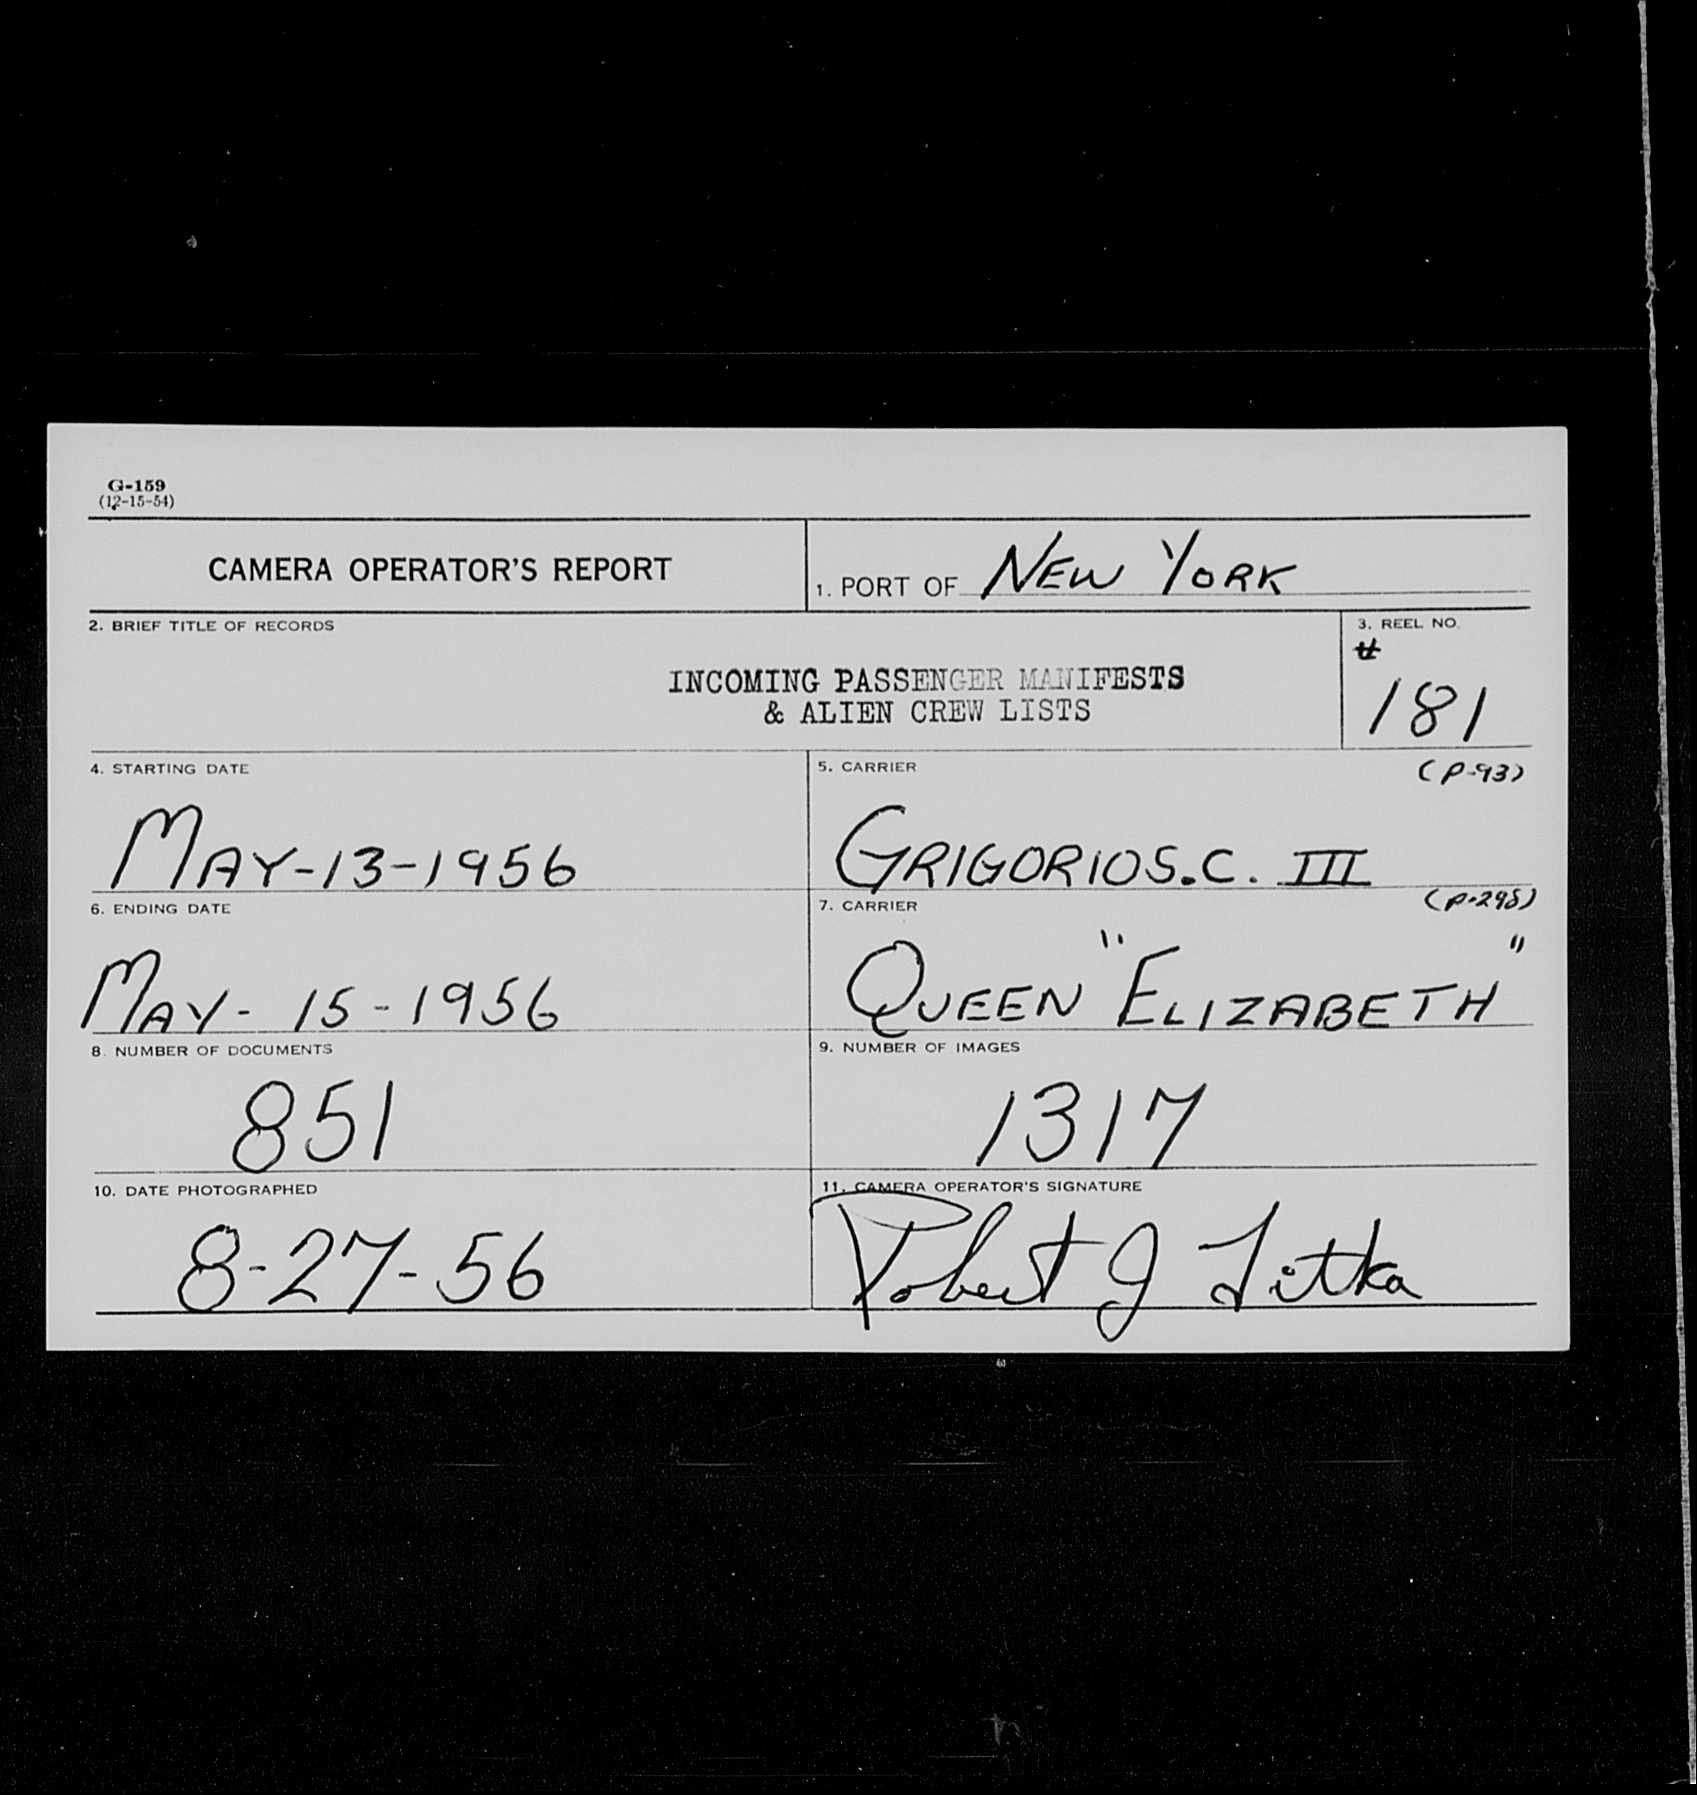 G-159
(12-15-54)
CAMERA OPERATOR'S REPORT
1. PORT OF NEW YORK
2. BRIEF TITLE OF RECORDS
INCOMING PASSENGER MANIFESTS
& ALIEN CREW LISTS
3. REEL NO.
#
181
4. STARTING DATE
MAY-13-1956
5. CARRIER (P-93)
GRIGORIOS.C. III
6. ENDING DATE
MAY-15-1956
7. CARRIER (P-298)
QUEEN "ELIZABETH"
8. NUMBER OF DOCUMENTS
851
9. NUMBER OF IMAGES
1317
10. DATE PHOTOGRAPHED
8-27-56
11. CAMERA OPERATOR'S SIGNATURE
Robert J Litka